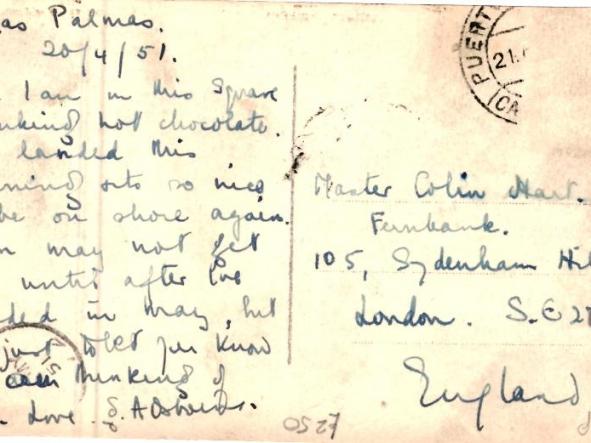 as Palmas.
20/4/51.
I am in this Square
nking hot chocolate.
landed this
ning its so nice
be on shore again.
may not get
until after I've
ded in may, but
just to let you know
am thinking of
Love
Master Colin Hart.
Fernbank.
105, Sydenham Hil
London. S.E 2
England
PUERT
21.
CA
£2.50